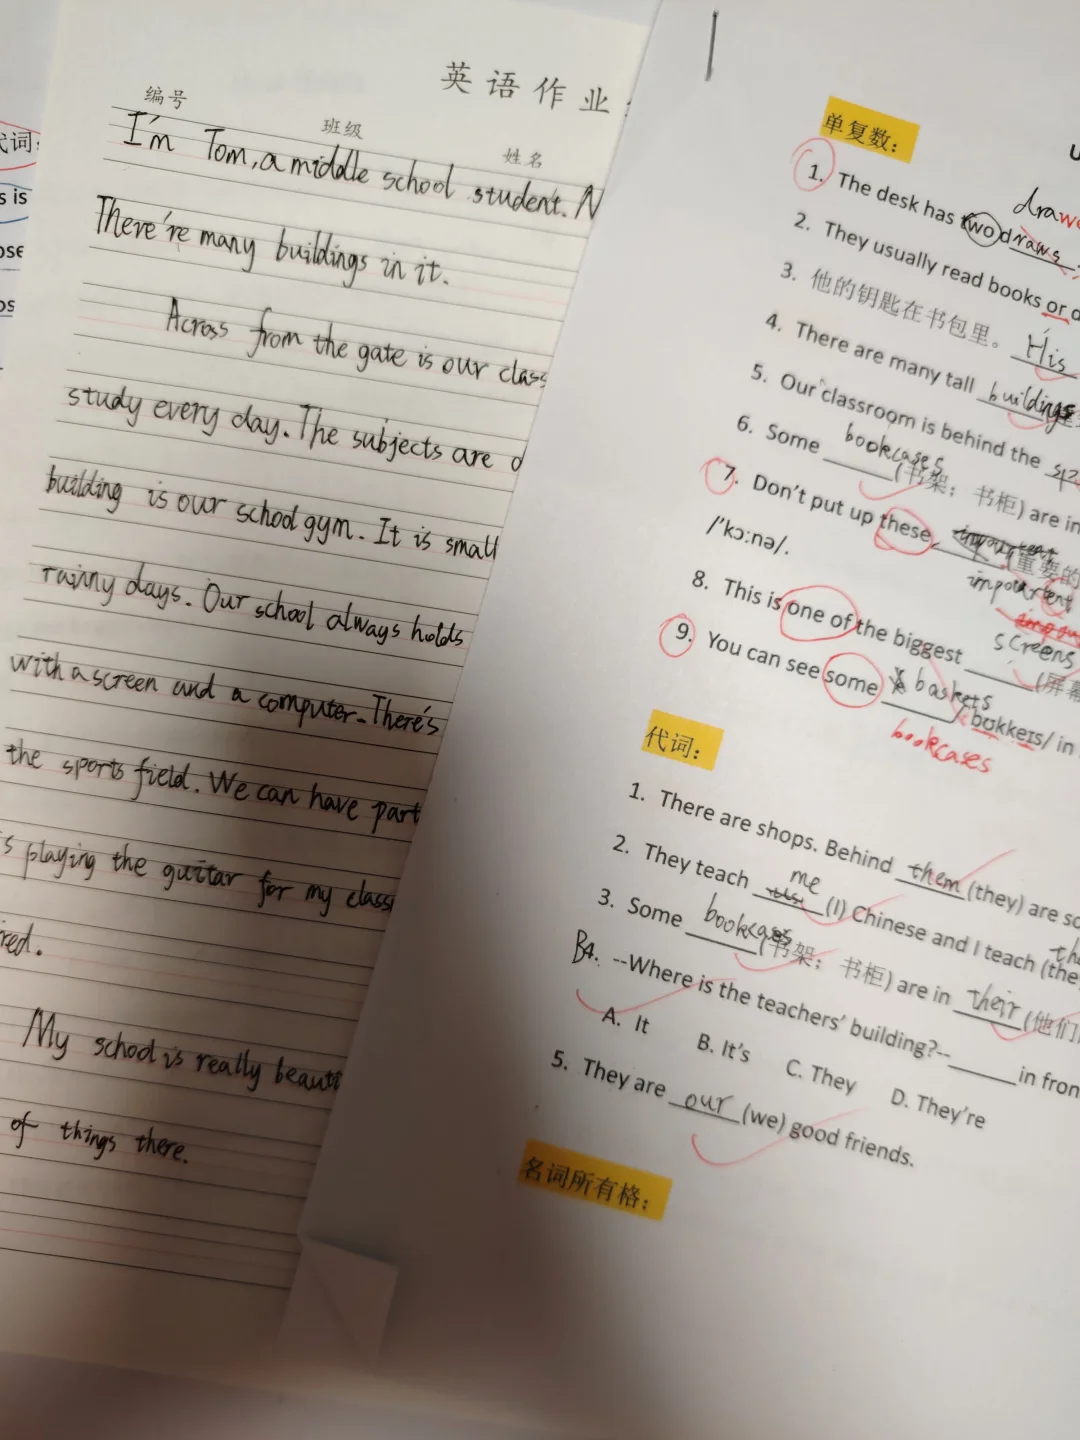 代词:
s is
ose
os
英语作业
编号
班级
姓名
I'm Tom, a middle school student. N
There're many buildings in it.
Across from the gate is our class
study every day. The subjects are
building is our school gym. It is small
rainny days. Our school always holds
with a screen and a computer. There's
the sports field. We can have part
s playing the guitar for my class
red.
My school is really beauti
of things there.
单复数:
1. The desk has two draws
drawe
2. They usually read books or
3. 他的钥匙在书包里。 His
4. There are many tall buildings
5. Our classroom is behind the
6. Some bookcases (书架; 书柜) are in
7. Don't put up these (重要的
/'kɔ:nə/.
8. This is one of the biggest screens (屏幕
9. You can see some baskets /bʊkkeɪs/ in
bookcases
代词:
1. There are shops. Behind them (they) are so
2. They teach me (I) Chinese and I teach (the
3. Some bookcases (书架; 书柜) are in their (他们
B4. --Where is the teachers' building?--______ in fron
A. It B. It's C. They D. They're
5. They are our (we) good friends.
名词所有格: